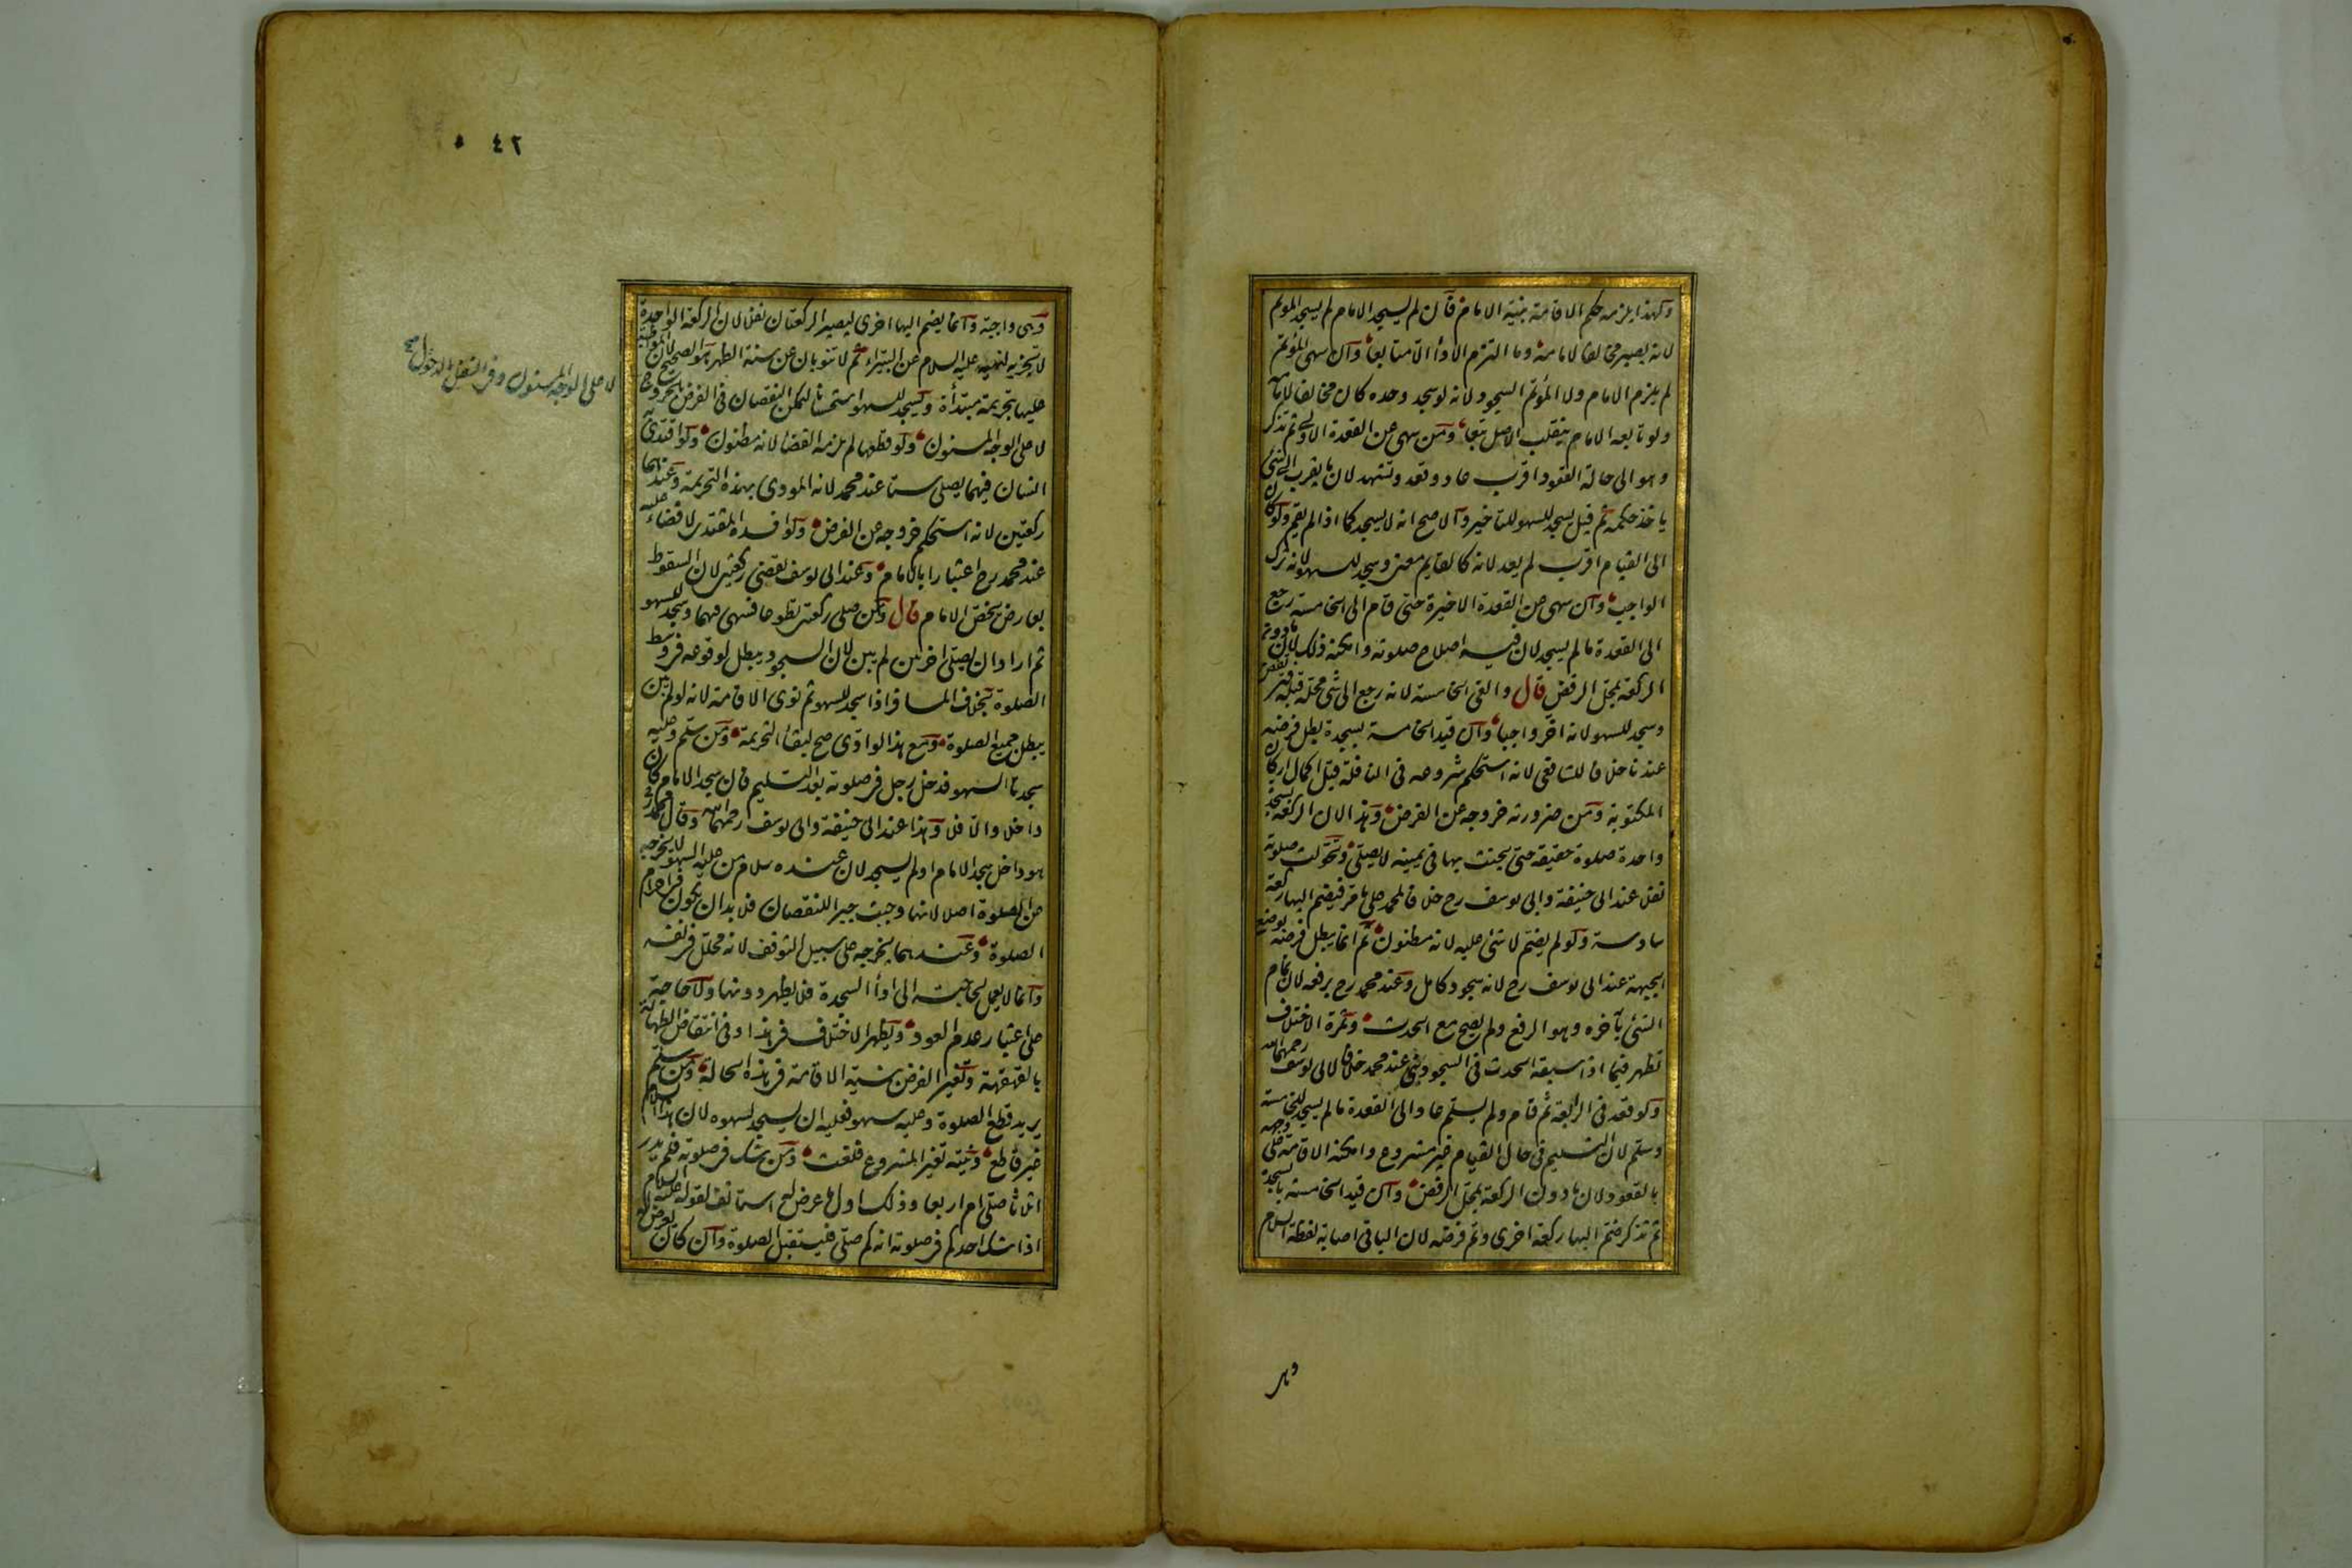 ولهذا يلزمه حكم الاقامة بنية الامام فان لم يسجد الامام لم يسجد المؤتم
لانه يصير مخالفا لامامه وما التزم الاداء الا متابعا وان سهى المؤتم
لم يلزم الامام ولا المؤتم السجود لانه لو سجد وحده كان مخالفا لامامه
ولو تابعه الامام ينقلب الاصل تبعا ومن سهى عن القعدة الاولى ثم تذكر
وهو الى حالة القعود اقرب عاد وقعد وتشهد لان ما يقرب الى الشئ
ياخذ حكمه ثم قيل يسجد للسهو للتاخير والاصح انه لا يسجد كما اذا لم يقم ولو كان
الى القيام اقرب لم يعد لانه كالقايم معنى وسجد للسهو لانه ترك
الواجب وان سهى عن القعدة الاخيرة حتى قام الى الخامسة رجع
الى القعدة ما لم يسجد لان فيه اصلاح صلوته وامكنه ذلك لان ما دون
الركعة بمحل الرفض قال والغى الخامسة لانه رجع الى شئ محله قبلها فترتفض
وسجد للسهو لانه اخر واجبا وان قيد الخامسة بسجدة بطل فرضه
عندنا خلافا للشافعى لانه استحكم شروعه فى النافلة قبل اكمال اركان
المكتوبة ومن ضرورته خروجه عن الفرض وهذا لان الركعة بسجدة
واحدة صلوة حقيقة حتى يحنث بها فى يمينه لا يصلى وتحولت صلوته
نفلا عند ابى حنيفة وابى يوسف رح خلافا لمحمد على ما مر فيضم اليها ركعة
سادسة ولو لم يضم لا شئ عليه لانه مظنون ثم انما يبطل فرضه بوضع
الجبهة عند ابى يوسف رح لانه سجود كامل وعند محمد رح برفعه لان تمام
الشئ بآخره وهو الرفع ولم يصح مع الحدث وثمرة الاختلاف
تظهر فيما اذا سبقه الحدث فى السجود بنى عند محمد خلافا لابى يوسف رحمهما الله
ولو قعد فى الرابعة ثم قام ولم يسلم عاد الى القعدة ما لم يسجد للخامسة
وسلم لان التسليم فى حال القيام غير مشروع وامكنه الاقامة على وجهه
بالقعود لان ما دون الركعة بمحل الرفض وان قيد الخامسة بالسجدة
ثم تذكر ضم اليها ركعة اخرى وتم فرضه لان الباقى اصابة لفظة السلام
وهى
٤٢
وهى واجبة وانما يضم اليها اخرى ليصير الركعتان نفلا لان الركعة الواحدة
لا تجزيه لنهيه عليه السلام عن البتيراء ثم لا تنوبان عن سنة الظهر هو الصحيح لان المواظبة
عليها بتحريمة مبتدأة ويسجد للسهو استحسانا لتمكن النقصان فى الفرض بالخروج
لا على الوجه المسنون ولو قطعها لم يلزمه القضاء لانه مظنون ولو اقتدى به
انسان فيهما يصلى ستا عند محمد لانه المودى بهذه التحريمة وعندهما
ركعتين لانه استحكم خروجه عن الفرض ولو افسده المقتدى لا قضاء عليه
عند محمد رح اعتبارا بالامام وعند ابى يوسف يقضى ركعتين لان السقوط
بعارض يخص الامام قال ومن صلى ركعتين تطوعا فسهى فيهما وسجد للسهو
ثم اراد ان يصلى اخريين لم يبن لان السجود يبطل لوقوعه فى وسط
الصلوة بخلاف المسافر اذا سجد للسهو ثم نوى الاقامة لانه لو لم يبن
يبطل جميع الصلوة ومع هذا لو ادى صح لبقاء التحريمة ومن سلم وعليه
سجدتا السهو فدخل رجل فى صلوته بعد التسليم فان سجد الامام كان
داخلا والا فلا وهذا عند ابى حنيفة وابى يوسف رحمهما الله وقال محمد رح
هو داخل سجد الامام او لم يسجد لان عنده سلام من عليه السهو لا يخرجه
عن الصلوة اصلا لانها وجبت جبرا للنقصان فلا بد ان يكون فى احرام
الصلوة وعندهما يخرجه على سبيل التوقف لانه محلل فى نفسه
وانما لا يعمل لحاجته الى اداء السجدة فلا يظهر دونها ولا حاجة
على اعتبار عدم العود ويظهر الاختلاف فى هذا وفى انتقاض الطهارة
بالقهقهة وتغير الفرض بنية الاقامة فى هذه الحالة ومن سلم
يريد قطع الصلوة وعليه سهو فعليه ان يسجد لسهوه لان هذا السلام
غير قاطع ونيته تغير المشروع فلغت ومن شك فى صلوته فلم يدر
اثلاثا صلى ام اربعا وذلك اول ما عرض له استانف لقوله عليه السلام
اذا شك احدكم فى صلوته انه كم صلى فليستقبل الصلوة وان كان يعرض له
لا على الوجه المسنون وفى النفل بالدخول صح